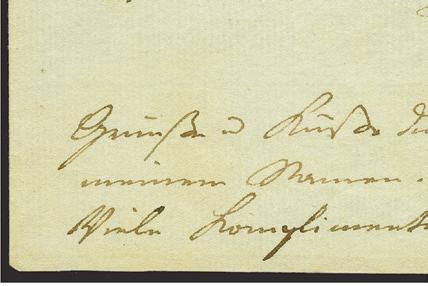 Grüße u Küße
meinem Namen.
Viele Komplimente